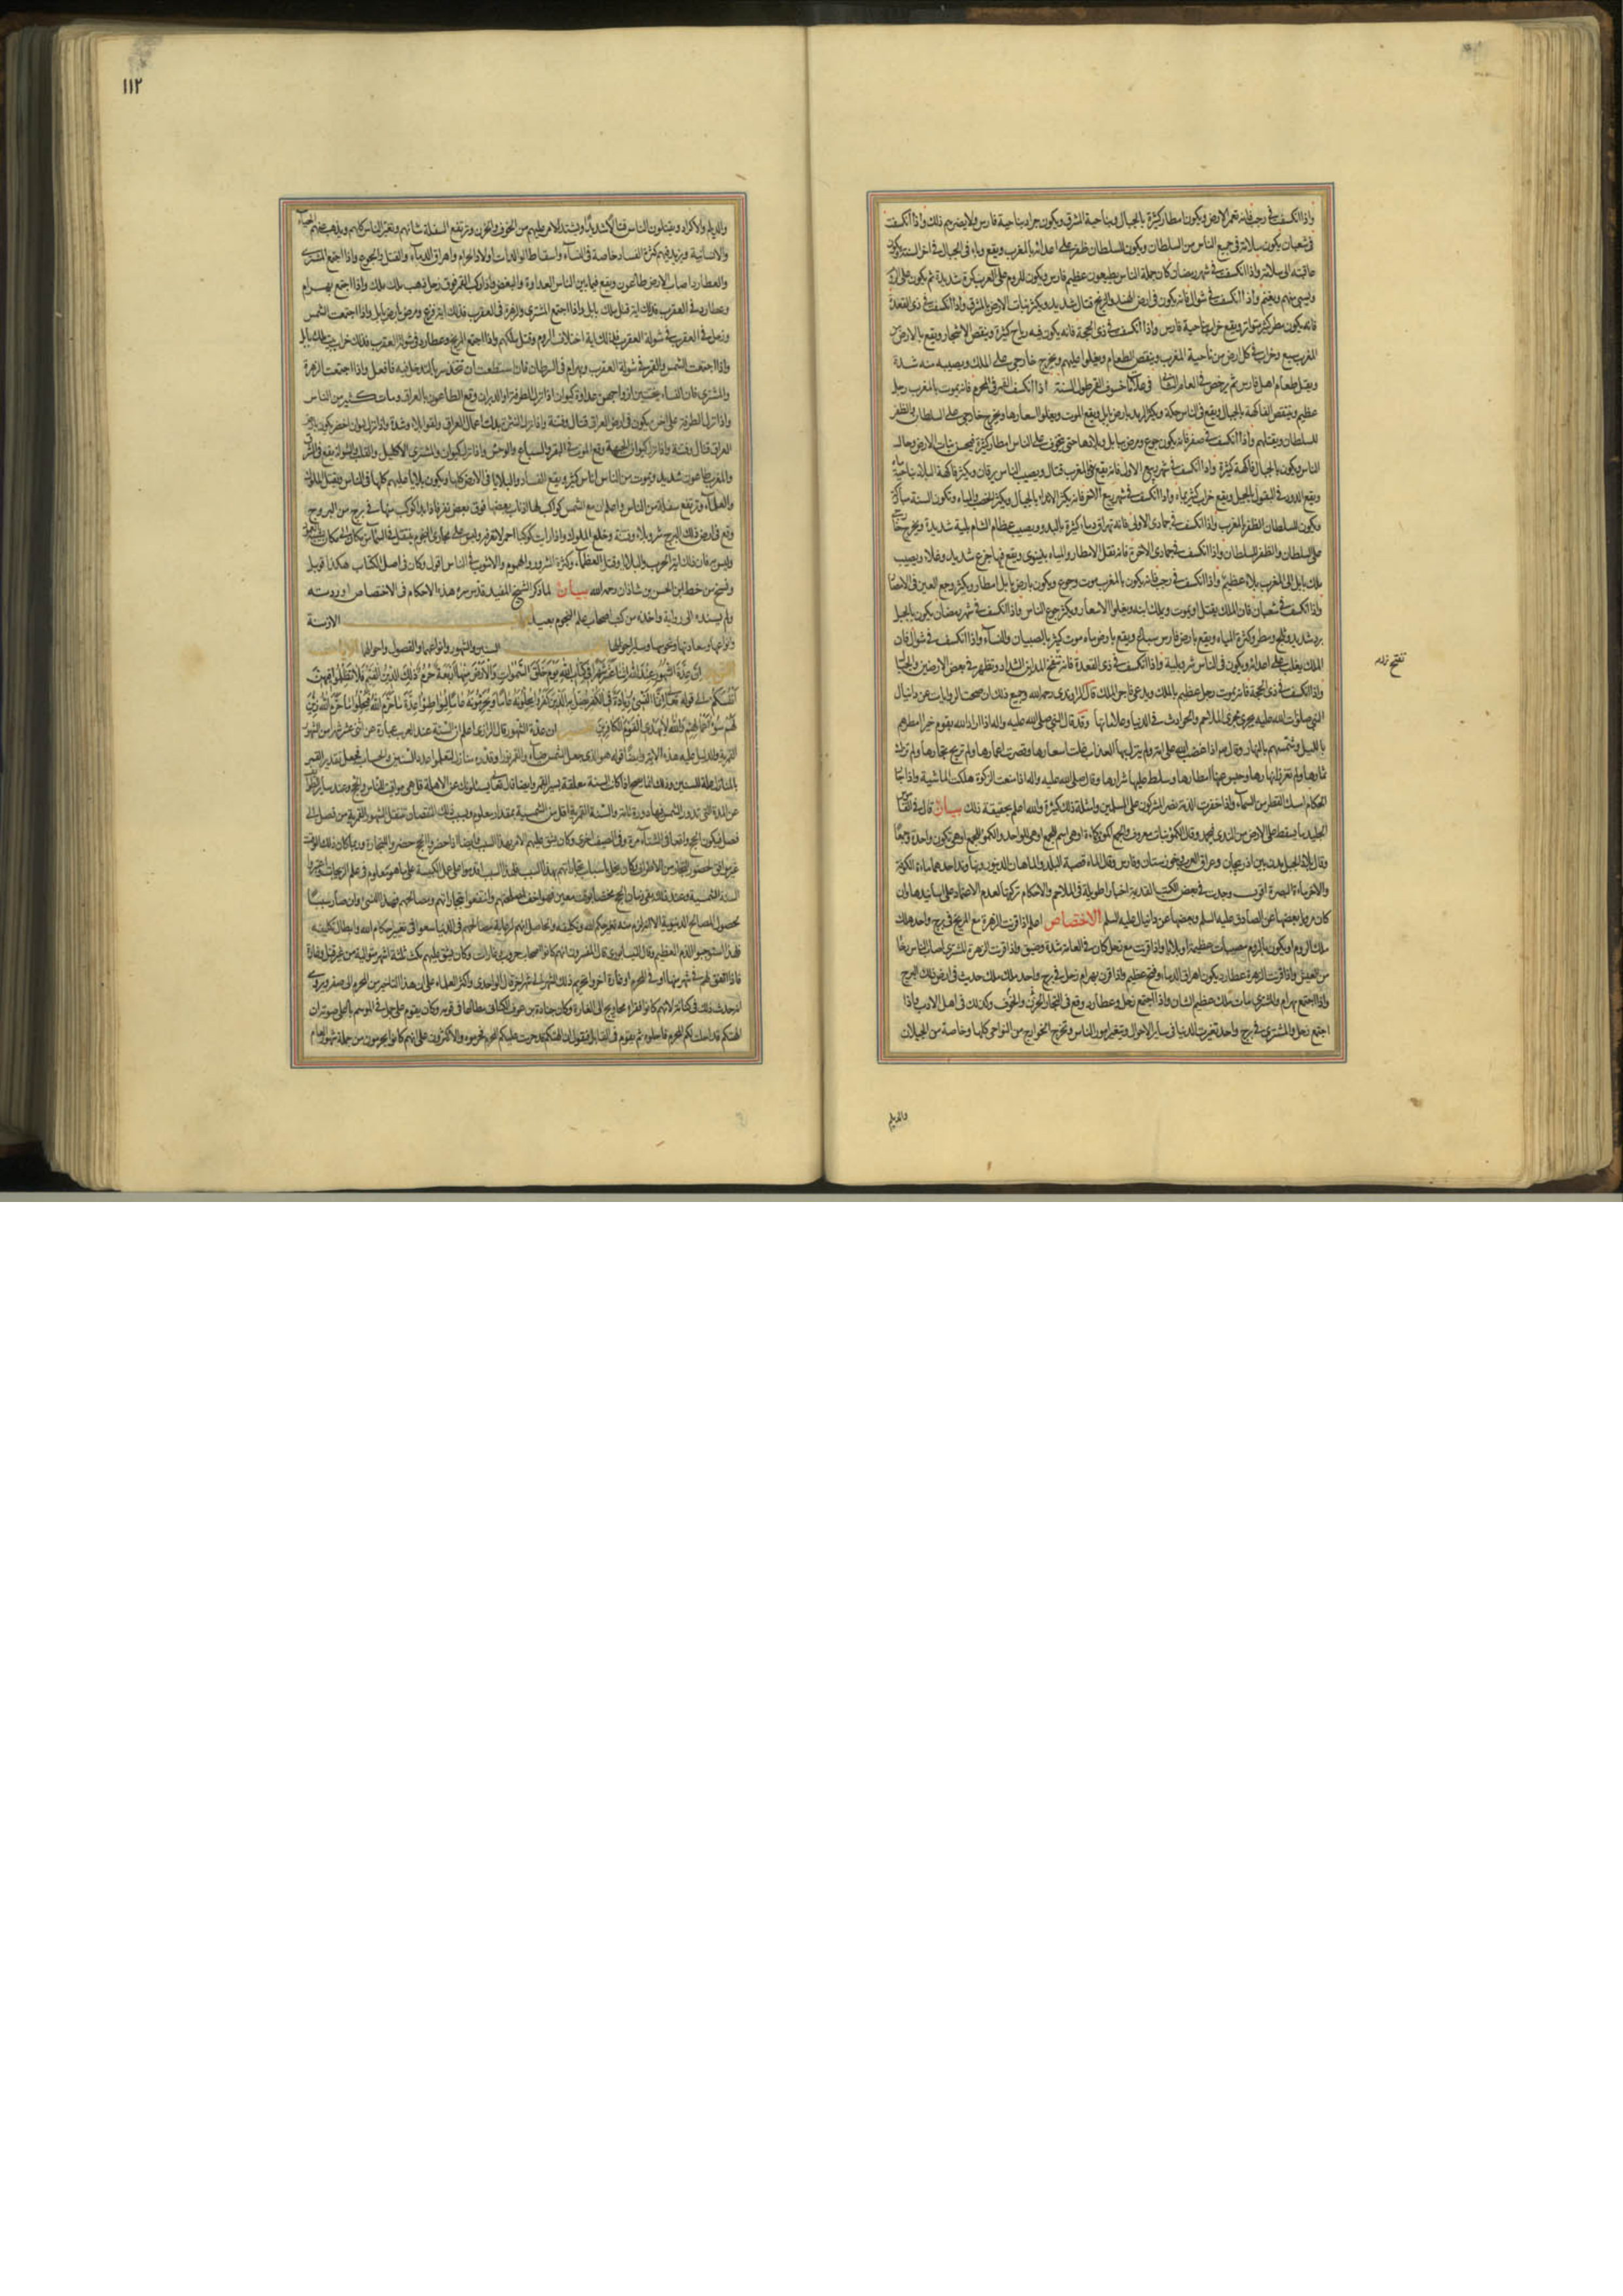 واذا انكسف في رجب فانه تعمر الارض ويكون امطار كثيرة بالجبال وبناحية المشرق ويكون جراد بناحية فارس ولا يضرهم ذلك واذا انكسف
في شعبان يكون سلامة في جميع الناس من السلطان ويكون للسلطان ظفر على اعدائه بالمغرب ويقع وباء في الجبال في اخر السنة ويكون
عاقبته الى سلامة واذا انكسف في شهر رمضان كان جملة الناس يطيعون عظيم فارس ويكون للروم على العرب كرة شديدة ثم يكون على الروم
ويسبى منهم ويغنم واذا انكسف في شوال فانه يكون في ارض الهند والزنج قتال شديد ويكثر نبات الارض بالمشرق واذا انكسف في ذي القعدة
فانه يكون مطر كثير متواتر ويقع خراب بناحية فارس واذا انكسف في ذي الحجة فانه يكون فيه رياح كثيرة وينقص الاشجار ويقع بالارض من
المغرب سبع وخراب في كل ارض من ناحية المغرب وينقص الطعام ويغلوا عليهم ويخرج خارجي على الملك ويصيبه منه شدة
ويقتل طعام اهل فارس ثم يرخص في العام الثاني في علامات خسوف القمر طول السنة اذا انكسف القمر في المحرم فانه يموت بالمغرب رجل
عظيم وينتقص الفاكهة بالجبال ويقع في الناس حكة ويكثر الرمد بارض بابل ويقع الموت ويغلوا اسعارها ويخرج خارجي على السلطان والظفر
للسلطان ويقتلهم واذا انكسف في صفر فانه يكون جوع ومرض ببابل وبلادها حتى يتخوف على الناس امطار كثيرة فيحسن نبات الارض وحال
الناس ويكون بالجبال فاكهة كثيرة واذا انكسف في شهر ربيع الاول فانه يقع في المغرب قتال ويصيب الناس يرقان ويكثر فاكهة البلاد بناحية ماه
ويقع الدود في البقول بالجبل ويقع خراب كثير بماه واذا انكسف في شهر ربيع الاخر فانه يكثر الانداء بالجبال ويكثر الخصب والمياه وتكون السنة مباركة
ويكون للسلطان الظفر بالمغرب واذا انكسف في جمادى الاولى فانه تهراق دماء كثيرة بالبدو ويصيب عظيم الشام بلية شديدة ويخرج خارجي
على السلطان والظفر للسلطان واذا انكسف في جمادى الاخرة فانه تقل الامطار والمياه بنينوى ويقع فيها جزع شديد وغلاء ويصيب
ملك بابل الى المغرب بلاء عظيم واذا انكسف في رجب فانه يكون بالمغرب موت وجوع ويكون بارض بابل امطار ويكثر وجع العين في الامصار
واذا انكسف في شعبان فان الملك يقتل او يموت ويملك ابنه ويغلوا الاسعار ويكثر جوع الناس واذا انكسف في شهر رمضان يكون بالجبل
برد شديد وثلج ومطر وكثرة المياه ويقع بارض فارس سباع ويقع بارض ماه موت كثير بالصبيان والنساء واذا انكسف في شوال فان
الملك يغلب على اعدائه ويكون في الناس شر وبلية واذا انكسف في ذي القعدة فانه تفتح المداين الشداد وتظهر في بعض الارضين والجبال
واذا انكسف في ذي الحجة فانه يموت رجل عظيم بالمغرب ويدعي فاجر الملك قال الراوندي رحمه الله وجميع ذلك ان صحت الروايات عن دانيال
النبي صلوات الله عليه يجري مجرى الملاحم والحوادث في الدنيا وعلاماتها وقد قال النبي صلى الله عليه واله اذا اراد الله بقوم خيرا امطرهم
بالليل وشمسهم بالنهار وقال عم اذا غضب الله على امة ولم ينزل بها العذاب غلت اسعارها وقصرت اعمارها ولم تربح تجارها ولم تزك
ثمارها ولم تغزر انهارها وحبس عنها امطارها وسلط عليها شرارها وقال صلى الله عليه واله اذا منعت الزكوة هلكت الماشية واذا جار
الحكام امسك القطر من السماء واذا خفرت الذمة نصر المشركون على المسلمين وامثلة ذلك كثيرة والله اعلم بحقيقة ذلك بيان قال في القاموس
الجليد ما يسقط على الارض من الندى فيجمد وقال الكمؤ نبات معروف والجمع اكمؤ وكمأة او هي اسم للجمع او هي للواحد والكمؤ للجمع او هي تكون واحدة وجمعا
وقال بلاد الجبل مدن بين اذربيجان وعراق العرب وخوزستان وفارس وقال الماه قصبة البلد والماهان الدينور ونهاوند احدهما ماه الكوفة
والاخر ماه البصرة اقول وجدت في بعض الكتب القديمة اخبارا طويلة في الملاحم والاحكام تركتها لعدم الاعتماد على اسانيدها وان
كان مرويا بعضها عن الصادق عليه السلم وبعضها عن دانيال عليه السلم الاختصاص اعلم اذا قرنت الزهرة مع المريخ في برج واحد هلك
ملك الروم او يكون بالروم مصيبات عظيمة او بلايا واذا قرنت مع زحل كان في العامة شدة وضيق واذا قرنت الزهرة المشتري اصاب الناس رخاء
من العيش واذا قرنت الزهرة عطارد يكون اهراق الدماء وفتح عظيم واذا قرن بهرام زحل في برج واحد ملك ملك حديث في ارض ذلك البرج
واذا اجتمع بهرام والمشتري مات ملك عظيم الشان واذا اجتمع زحل وعطارد وقع في التجار الحزن والخوف وكذلك في اهل الادب واذا
اجتمع زحل والمشتري في برج واحد تغيرت الدنيا في ساير الاحوال وتتغير امور الناس وتخرج الخوارج من النواحي كلها وخاصة من الجيلان
والديلم
١١٢
والديلم والاكراد ويقتلون الناس قتلا كثيرا شديدا ويشتد الامر عليهم من الخوف والحزن وترتفع السفلة شانهم وتغير الناس كلهم ويذهب عنهم الحياء
والانسانية ويزيد فيهم كثرة الفساد خاصة في النساء واسقاط الوالدات اولاد الحرام واهراق الدماء والقتل والجوع واذا اجتمع المشتري
والعطارد اصاب الارض طاعون ويقع فيما بين الناس العداوة والبغض واذا ركب القمر فوق زحل ذهب ملك ملك واذا اجتمع بهرام
وعطارد في العقرب فذلك اية قتل ملك بابل واذا اجتمع المشتري والزهرة في العقرب فذلك اية فزع ومرض بارض بابل واذا اجتمعت الشمس
وزحل في العقرب في شولة العقرب فذلك اية اختلاف الروم وقتل ملكهم واذا اجتمع المريخ وعطارد في شولة العقرب فذلك خراب بيت ملك بابل
واذا اجتمعت الشمس والقمر في شولة العقرب وبهرام في السرطان فان استطعت ان تتخذ سربا لتدخل فيه فافعل واذا اجتمعت الزهرة
والمشتري فان النساء يخفين ازواجهن عداوة كيوان اذا نزل الطرفة او الدبران وقع الطاعون بالعراق ومات كثير من الناس
واذا نزل الطرفة على اخره يكون في ارض العراق قتال وفتنة واذا نزل النثرة بدلت اعمال العراق ولقوا بلاء وشدة
العراق قتال وفتنة واذا نزل كيوان الجبهة وقع الموت في البقر والسباع والوحش واذا نزل كيوان والمشتري الاكليل والقلب والشولة يقع في الشرق
والمغرب طاعون شديد ويموت من الناس اناس كثير ويقع الفساد والبلايا في الارض كلها ويكون بلايا عليهم كلها في الناس ويقتل الملوك
والعلماء وترتفع سفلة من الناس واعلم ان مع الشمس كواكب لها اذناب بعضها فوق بعض فترى فاذا بدا كوكب منها في برج من البروج
وقع في ارض ذلك البرج شر وبلاء وفتنة وخلع الملوك واذا رايت كوكبا احمر لا تعرفه وليس على مجاري النجوم ينتقل في السماء من مكان الى مكان
وليس به فان ذلك اية الحرب والبلايا وقتل العظماء وكثرة الشرور والهموم والاشوب في الناس اقول وكان في اصل الكتاب هكذا قوبل
ونسخ من خط ابن الحسن بن شاذان رحمه الله بيان لما ذكر الشيخ المفيد قدس سره هذه الاحكام في الاختصاص اوردته
ولم يسنده الى رواية واخذه من كتب اصحاب علم النجوم بعيد الازمنة
وانواعها وسعادتها ونحوستها وساير احوالها السنين والشهور وانواعهما والفصول واحوالها
ان عدة الشهور عند الله اثنا عشر شهرا في كتاب الله يوم خلق السموات والارض منها اربعة حرم ذلك الدين القيم فلا تظلموا فيهن
انفسكم الى قوله تعالى انما النسيء زيادة في الكفر يضل به الذين كفروا يحلونه عاما ويحرمونه عاما ليواطئوا عدة ما حرم الله فيحلوا ما حرم الله زين
لهم سوء اعمالهم والله لا يهدي القوم الكافرين ان عدة الشهور قال الرازي اعلم ان السنة عند العرب عبارة عن اثني عشر شهرا من الشهور
القمرية والدليل عليه هذه الاية وايضا قوله هو الذي جعل الشمس ضياء والقمر نورا وقدره منازل لتعلموا عدد السنين والحساب فجعل تقدير القمر
بالمنازل علة للسنين وذلك انما يصح اذا كان السنة معلقة بسير القمر وايضا قال تعالى يسئلونك عن الاهلة قل هي مواقيت للناس والحج وعند ساير الطوايف
عن المدة التي تدور الشمس فيها دورة تامة والسنة القمرية اقل من الشمسية بمقدار معلوم وبسبب ذلك النقصان تنتقل الشهور القمرية من فصل الى
فصل فيكون الحج واقعا في الشتاء مرة وفي الصيف اخرى وكان يشق عليهم الامر بهذا السبب وايضا اذا حضروا الحج حضروا للتجارة وربما كان ذلك الوقت
غير موافق لحضور التجار من الاطراف وكان يخل اسباب تجاراتهم بهذا السبب فلهذا السبب اقدموا على عمل الكبيسة على ما هو معلوم في علم الزيجات واعتبروا
السنة الشمسية وعند ذلك بقي زمان الحج مختصا بوقت معين موافق لمصلحتهم وانتفعوا بتجاراتهم ومصالحهم فهذا النسيء وان صار سببا
لحصول المصالح الدنيوية الا انه لزم منه تغير حكم الله وتكليفه والحاصل انهم لرعاية مصالحهم في الدنيا سعوا في تغيير احكام الله وابطال تكليفه
فلهذا استوجبوا الذم العظيم وقال النيسابوري قال المفسرون انهم كانوا اصحاب حروب وغارات وكان يشق عليهم مكث ثلثة اشهر متوالية من غير قتل وغارة
فاذا اتفق لهم في شهر منها او في المحرم او غارة اخروا تحريم ذلك الشهر الى شهر اخر قال الواحدي واكثر العلماء على ان هذا التاخير من المحرم الى صفر ويروى
انه حدث ذلك في كنانة لانهم كانوا فقراء محاويج الى الغارة وكان جنادة بن عوف الكناني مطاعا في قومه وكان يقوم على جمل في الموسم باعلى صوته ان
الهتكم قد احلت لكم المحرم فاحلوه ثم يقوم في القابل فيقول ان الهتكم قد حرمت عليكم المحرم فحرموه والاكثرون على انهم كانوا يحرمون من جملة شهور العام